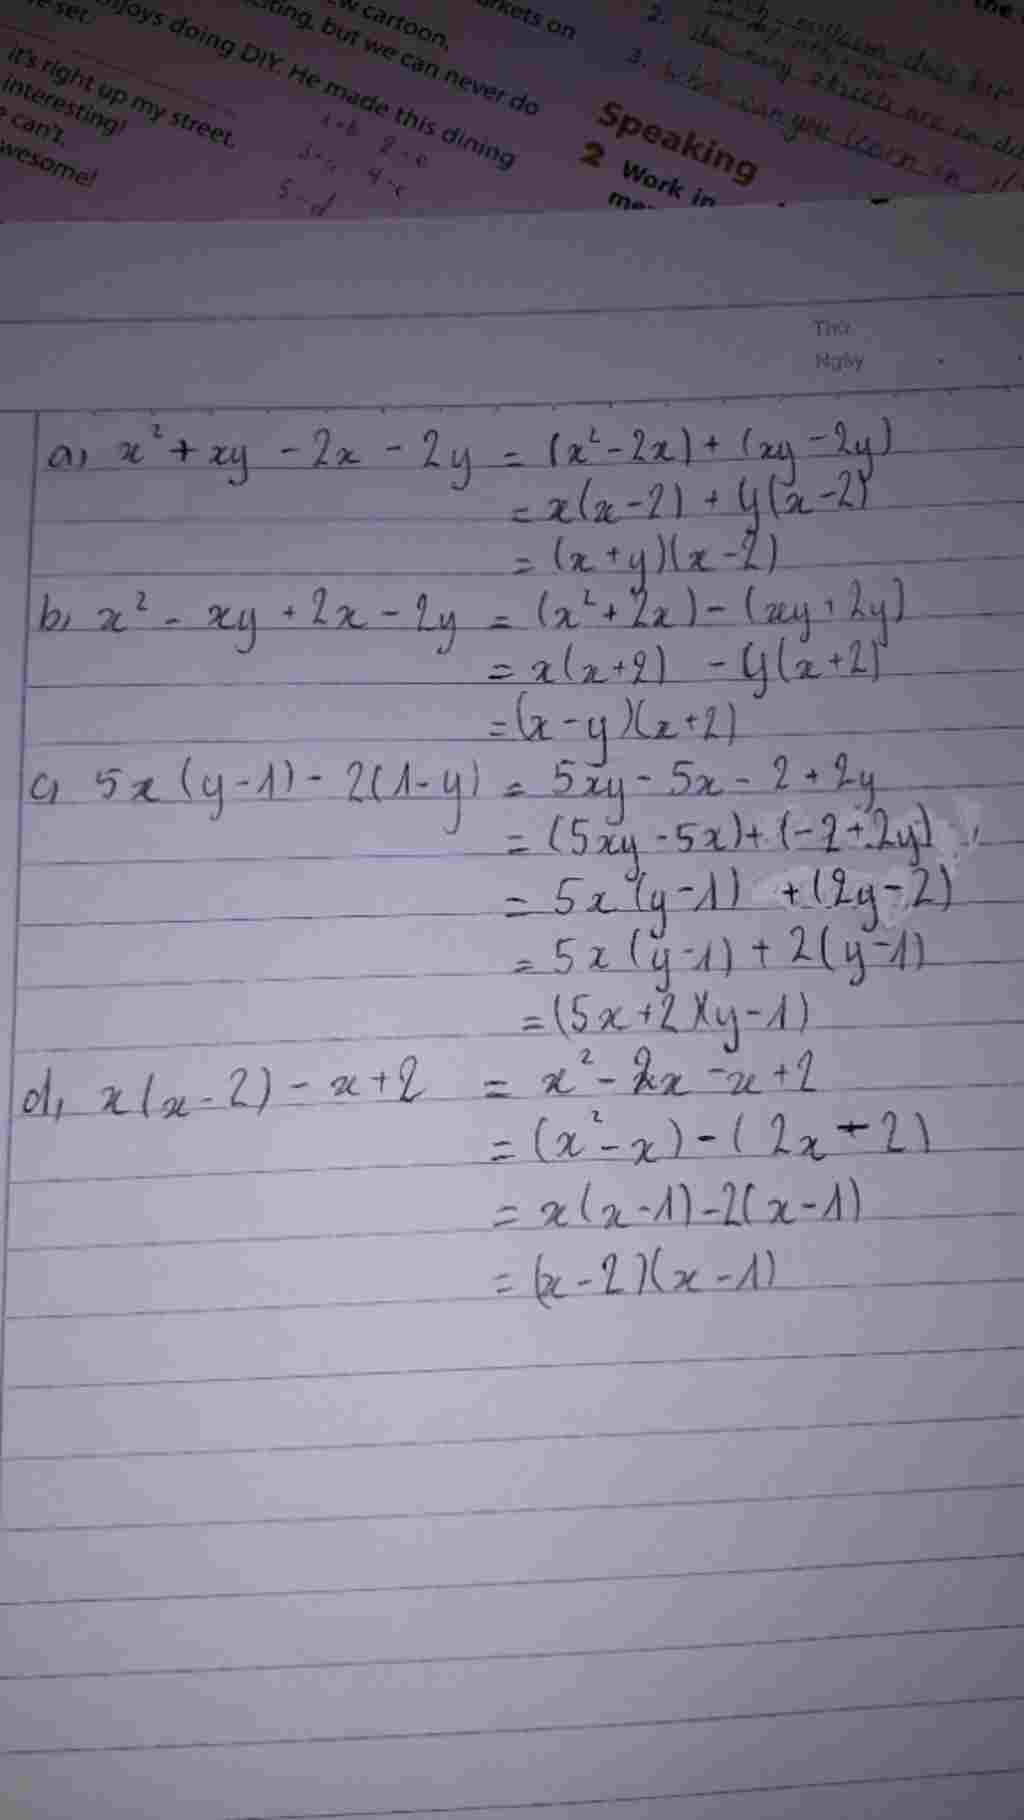 e set.
it's right up my street.
interesting!
can't.
wesome!
njoys doing DIY. He made this dining
citing, but we can never do
w cartoon.
rkets on
the
1-b 2-e
4-c
5-d
Speaking
2 Work in
2.
3.
can you learn in
Thứ
Ngày
a, x² + xy - 2x - 2y = (x² - 2x) + (xy - 2y)
= x(x-2) + y(x-2)
= (x+y)(x-2)
b, x² - xy + 2x - 2y = (x² + 2x) - (xy + 2y)
= x(x+2) - y(x+2)
= (x-y)(x+2)
c, 5x(y-1) - 2(1-y) = 5xy - 5x - 2 + 2y
= (5xy - 5x) + (-2 + 2y)
= 5x(y-1) + (2y-2)
= 5x(y-1) + 2(y-1)
= (5x+2)(y-1)
d, x(x-2) - x+2 = x² - 2x - x + 2
= (x² - x) - (2x - 2)
= x(x-1) - 2(x-1)
= (x-2)(x-1)